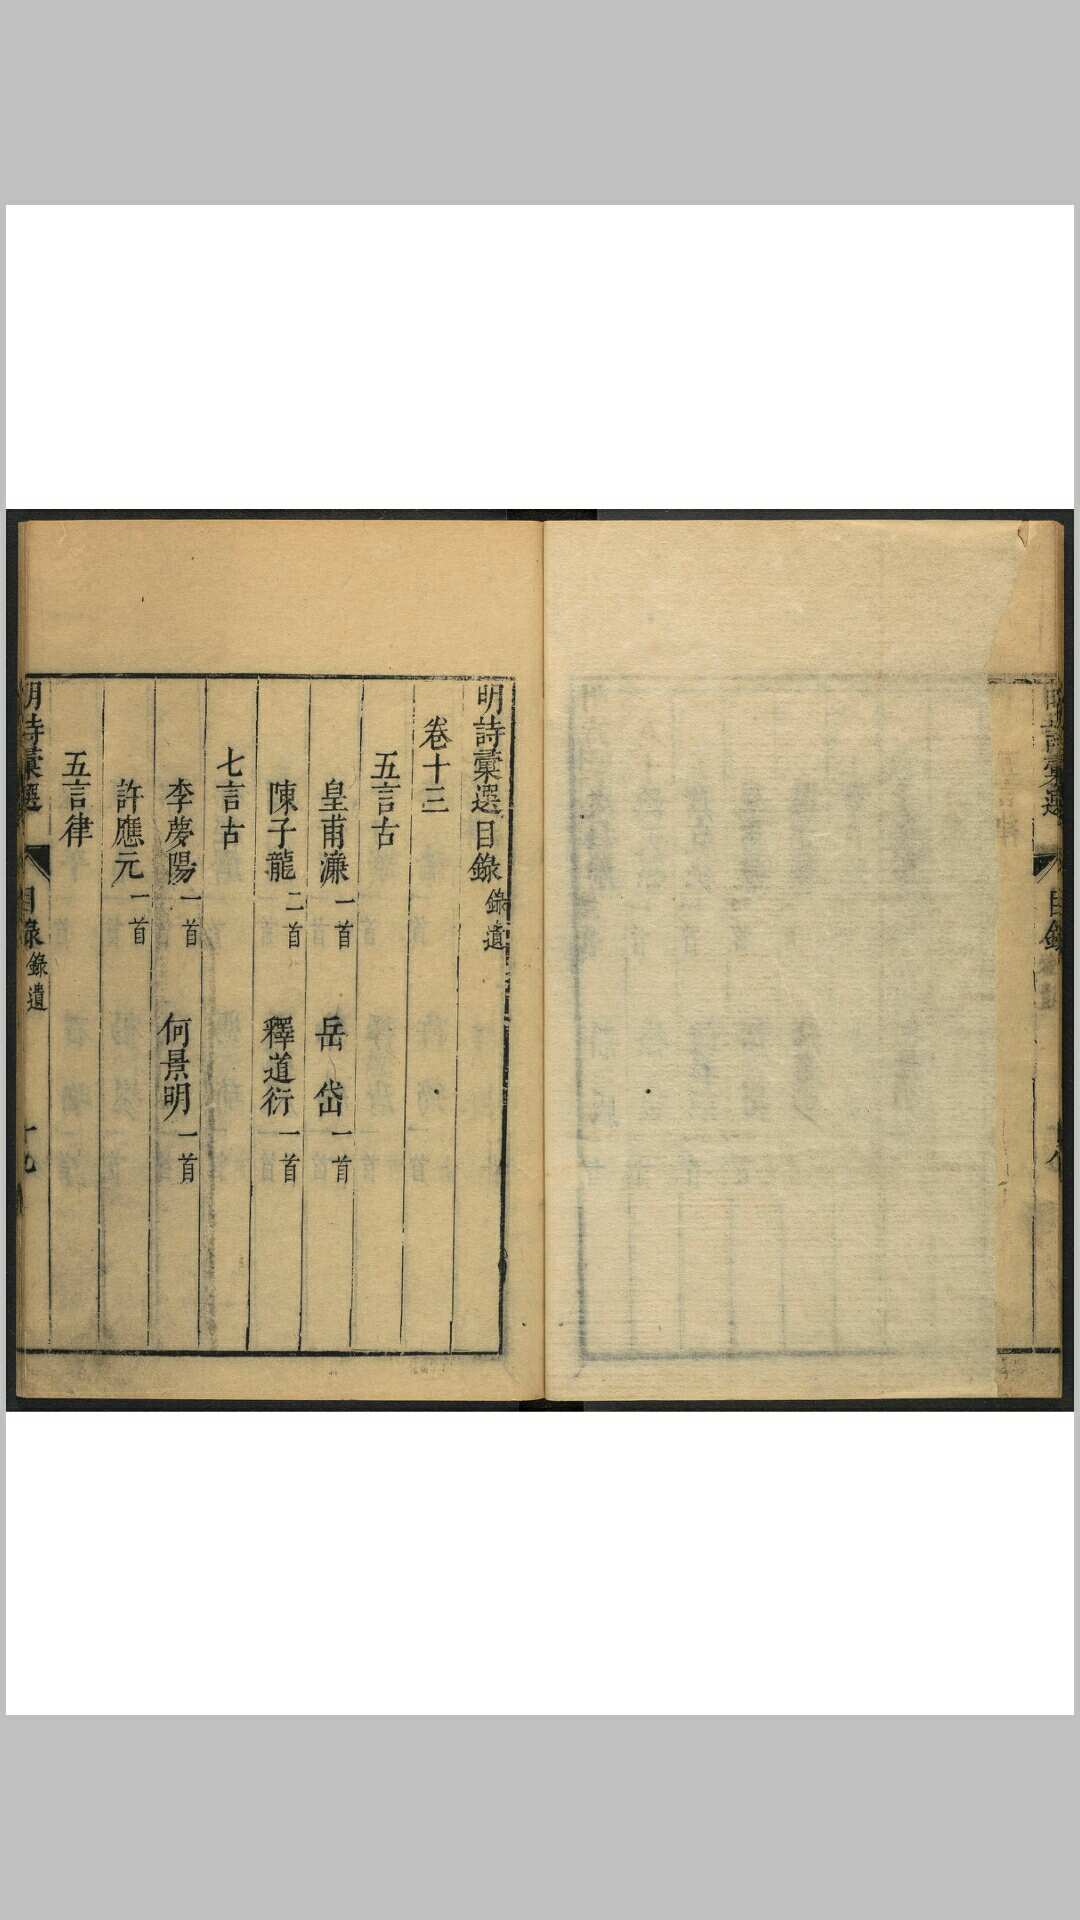 明詩彙選
目錄
明詩彙選目錄 錄遺
卷十三
五言古
皇甫濂 一首 岳岱 一首
陳子龍 二首 釋道衍 一首
七言古
李夢陽 一首 何景明 一首
許應元 一首
五言律
明詩彙選 目錄 錄遺 十九